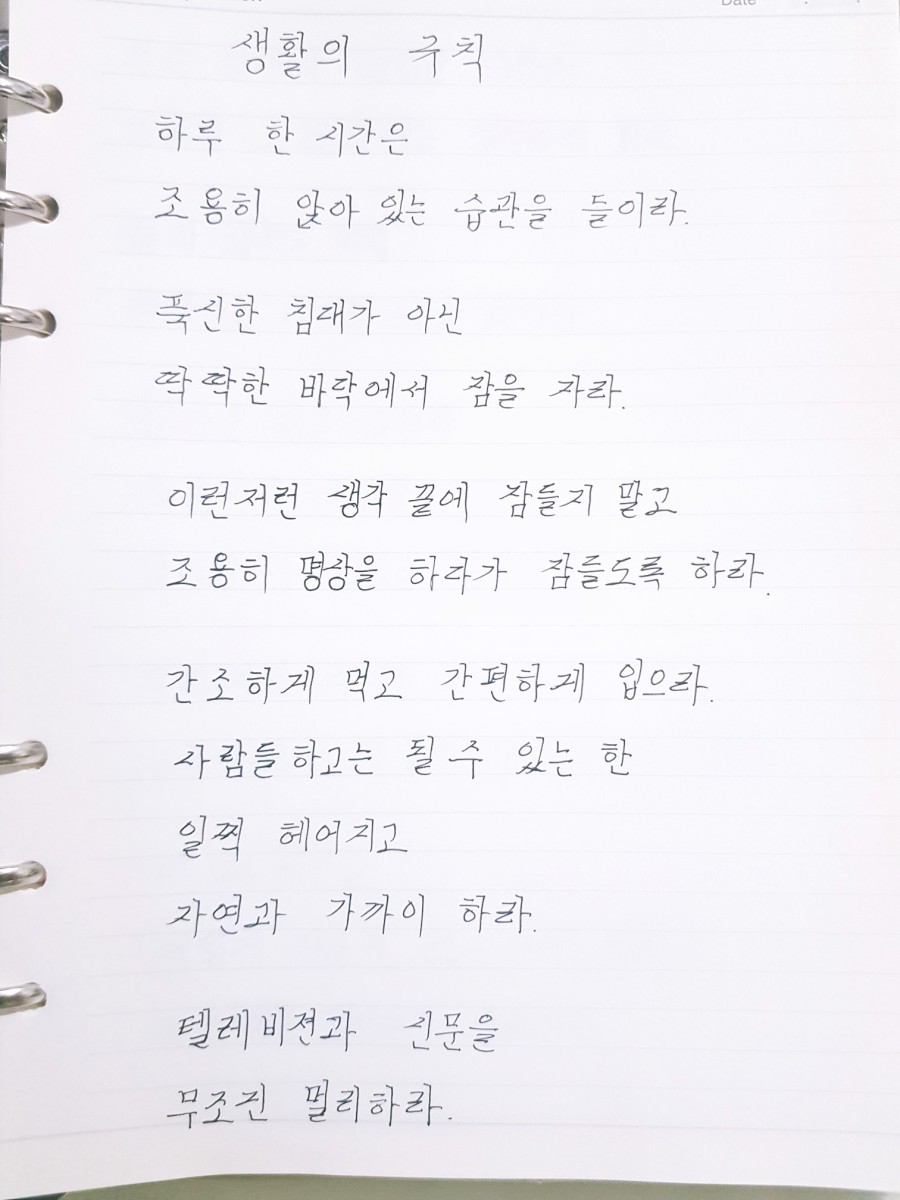 Date
생활의 규칙
하루 한 시간은
조용히 앉아 있는 습관을 들이라.
푹신한 침대가 아닌
딱딱한 바닥에서 잠을 자라.
이런저런 생각 끝에 잠들지 말고
조용히 명상을 하다가 잠들도록 하라.
간조하게 먹고 간편하게 입으라.
사람들하고는 될 수 있는 한
일찍 헤어지고
자연과 가까이 하라.
텔레비젼과 신문을
무조건 멀리하라.